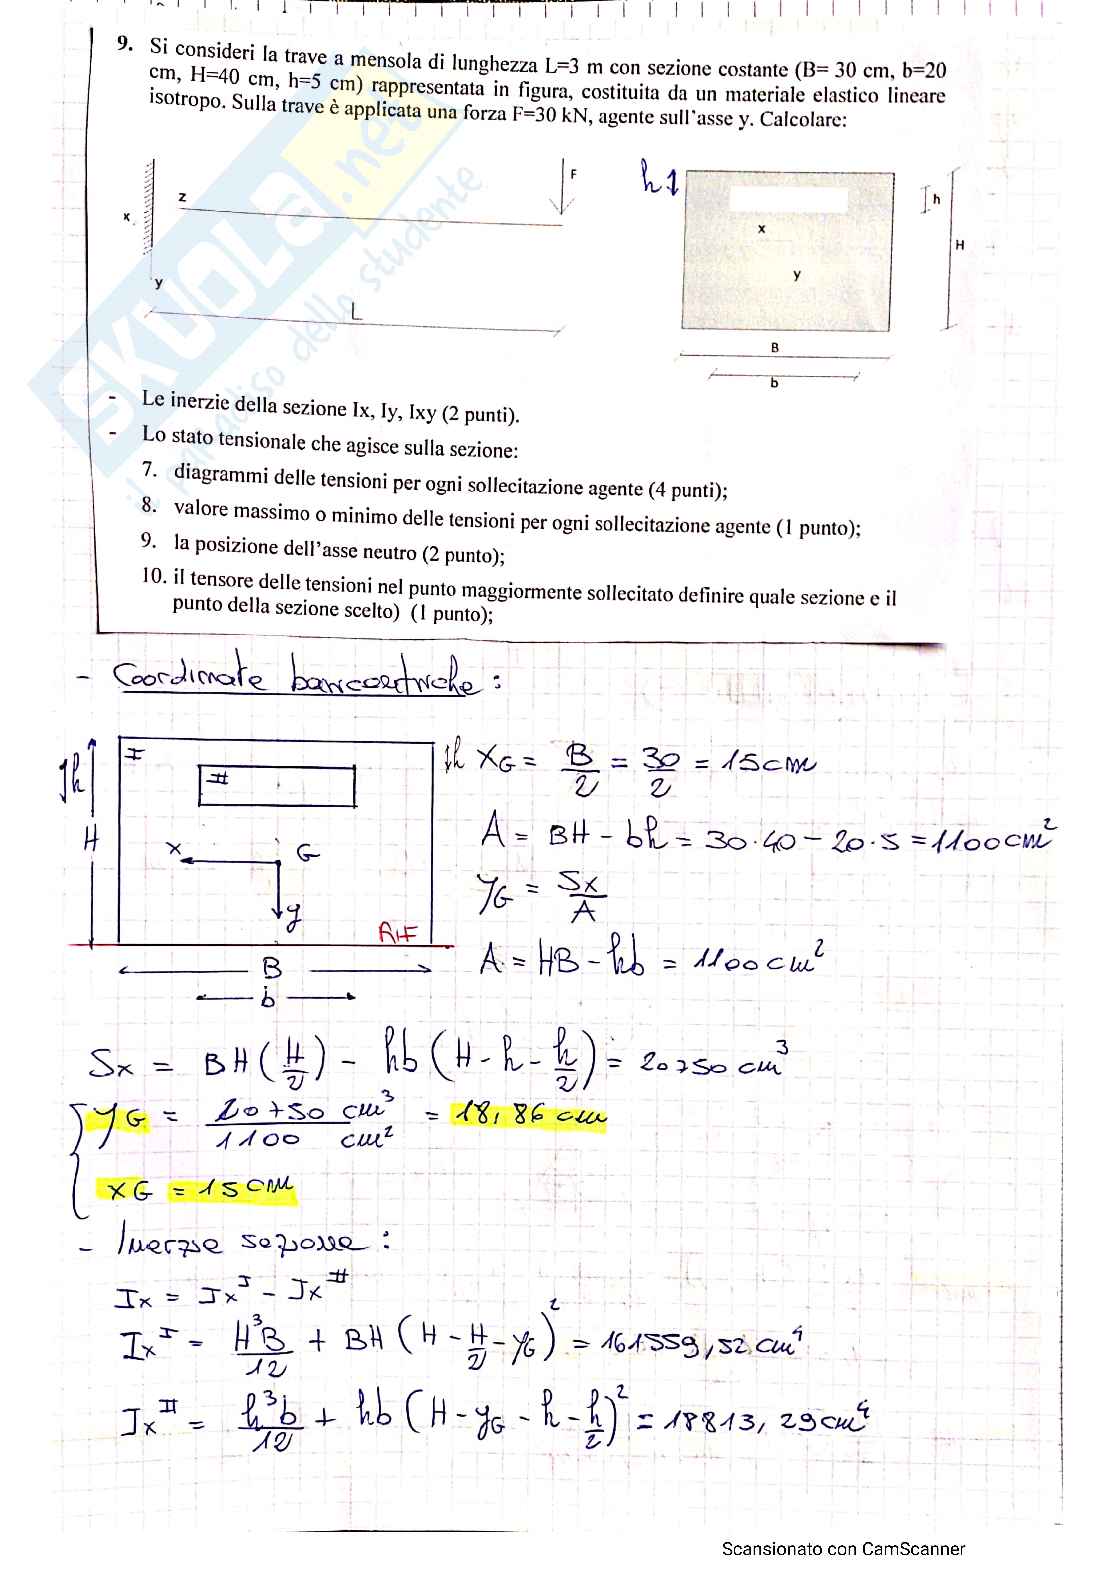 9. Si consideri la trave a mensola di lunghezza L=3 m con sezione costante (B= 30 cm, b=20
cm, H=40 cm, h=5 cm) rappresentata in figura, costituita da un materiale elastico lineare
isotropo. Sulla trave è applicata una forza F=30 kN, agente sull'asse y. Calcolare:
z
F
x
y
L
h
x
y
h
H
B
b
SKUOLA.net
il paradiso dello studente
- Le inerzie della sezione Ix, Iy, Ixy (2 punti).
- Lo stato tensionale che agisce sulla sezione:
7. diagrammi delle tensioni per ogni sollecitazione agente (4 punti);
8. valore massimo o minimo delle tensioni per ogni sollecitazione agente (1 punto);
9. la posizione dell'asse neutro (2 punto);
10. il tensore delle tensioni nel punto maggiormente sollecitato definire quale sezione e il
punto della sezione scelto) (1 punto);
- Coordinate baricentriche:
I
II
h
H
x
G
y
RIF
B
b
h
XG = B/2 = 30/2 = 15 cm
A = BH - bh = 30·40 - 20·5 = 1100 cm²
yG = Sx/A
A = HB - hb = 1100 cm²
Sx = BH(H/2) - hb(H - h - h/2) = 20750 cm³
yG = 20750 cm³/1100 cm² = 18,86 cm
xG = 15 cm
- Inerzie sezione:
Ix = Jx^I - Jx^II
Ix^I = H³B/12 + BH(H - H/2 - yG)² = 161559,52 cm⁴
Jx^II = h³b/12 + hb(H - yG - h - h/2)² = 18813,29 cm⁴
Scansionato con CamScanner